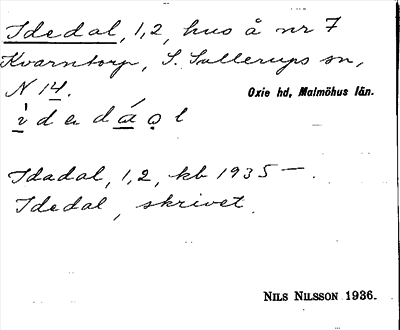 Idedal, 1,2, hus å nr 7
Kvarntorp, S. Sallerups sn,
N 14.
Oxie hd, Malmöhus län.
Idadal, 1,2, kb 1935 —.
Idedal, skrivet.
NILS NILSSON 1936.